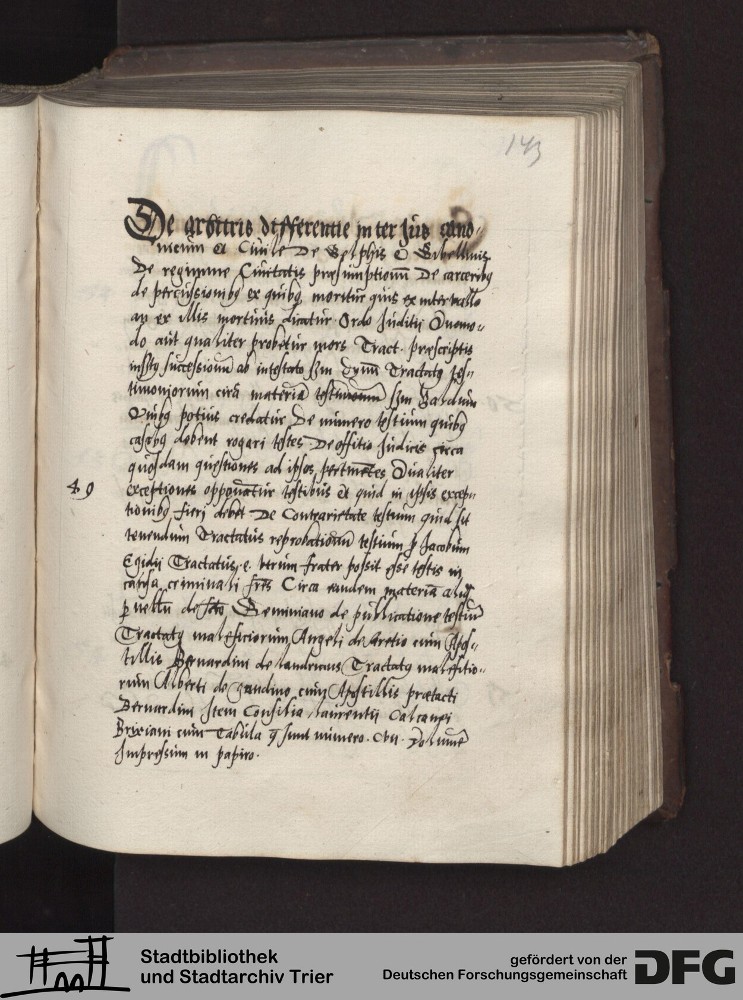 143
De arbitris differentie inter Jus cano-
nicum et Ciuile De Gelphis & Gibellinis
De regimine Ciuitatis præsumptionū De carceribꝫ
de percussionibꝫ ex quibꝫ moritur quis ex interuallo
an ex illis mortuus dicatur Ordo Juditij Quomo-
do aut qualiter probetur mors Tract. præscriptis
successionū ab intestato Tractatꝫ tes-
timoniorum circa materiā testimoniū Bardum
Quibꝫ potius credatur De numero testium quibꝫ
casibꝫ debent rogari testes De offitio Judicis circa
quosdam questiones ad ipsos pertinētes Qualiter
49
exceptiones opponātur testibus et quid in ipsis excep-
tionibꝫ fieri debet De Contrarietate testium quid sit
tenendum Tractatus reprobationū testium ꝑ Jacobum
Egidij Tractatus .e. vtrum frater possit esse testis in
causa criminali Circa eandem materiā
de Geminiano de publicatione testiū
Tractatꝫ maleficiorum Angeli de Aretio cum Apos-
tillis Bernardini de landrianus Tractatꝫ malefitio-
rum Alberti de gandino cum Apostillis prætacti
Bernardini Item Consilia laurentij Calcanei
Brixiani cum Tabula q̄ sunt numero. Cvii. volumē
Impressum in papiro.
Stadtbibliothek
und Stadtarchiv Trier
gefördert von der
Deutschen Forschungsgemeinschaft
DFG